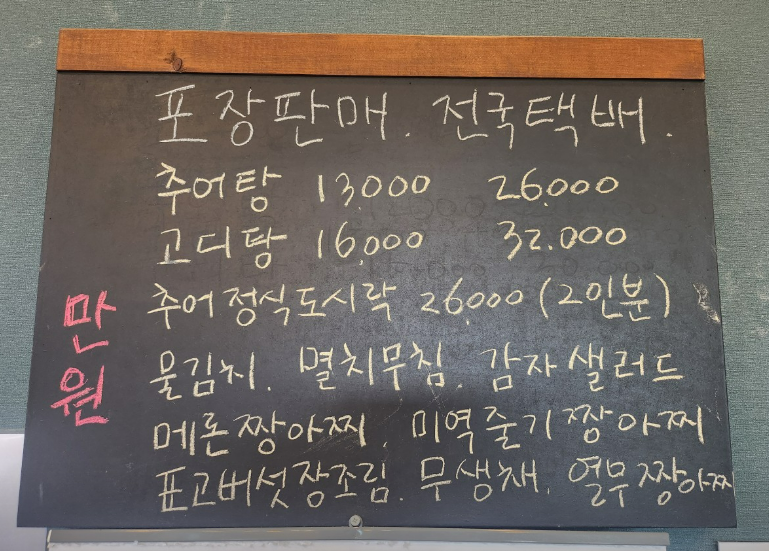 포장판매. 전국택배.
추어탕 13,000 26,000
고디탕 16,000 32.000
추어정식도시락 26,000 (2인분)
만원
물김치. 멸치무침. 감자샐러드
메론짱아찌. 미역줄기짱아찌
표고버섯장조림. 무생채. 열무짱아찌